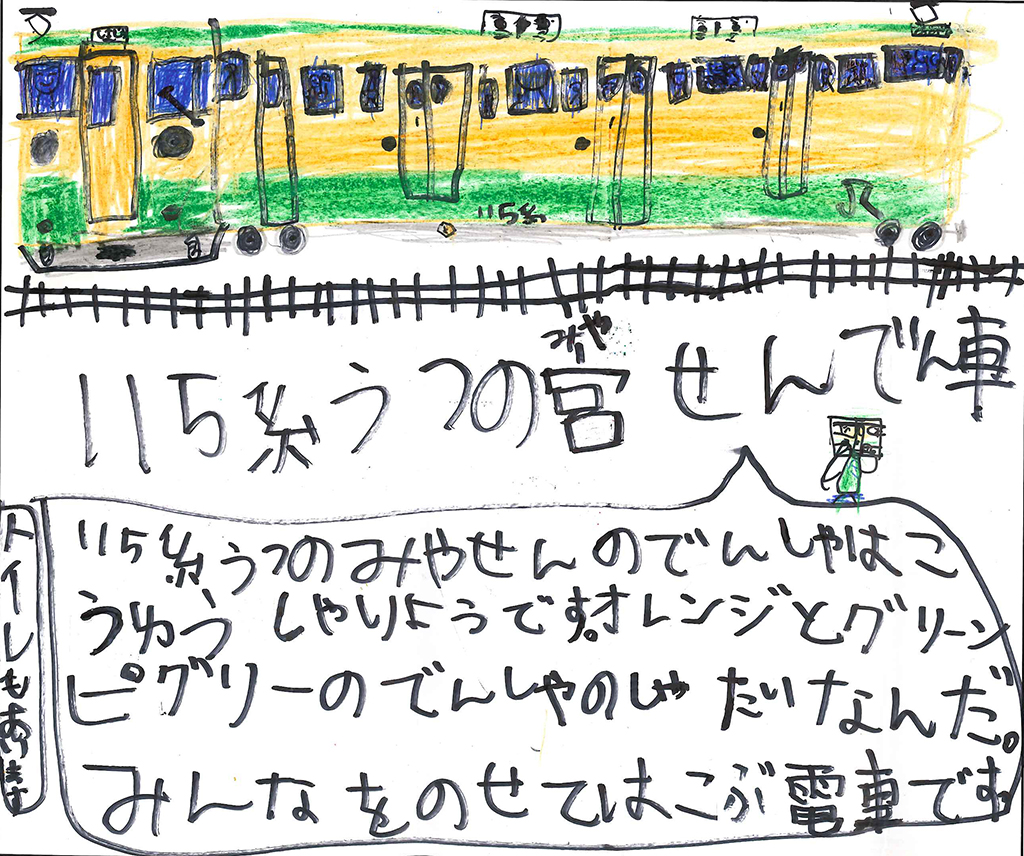 115系
みや
115系うつの宮せんでん車
115系うつのみやせんのでんしゃはこ
うゆうしゃりようです。オレンジとグリーン
ピグリーのでんしゃのしゃたいなんだ。
みんなをのせてはこぶ電車です
トイレもあります